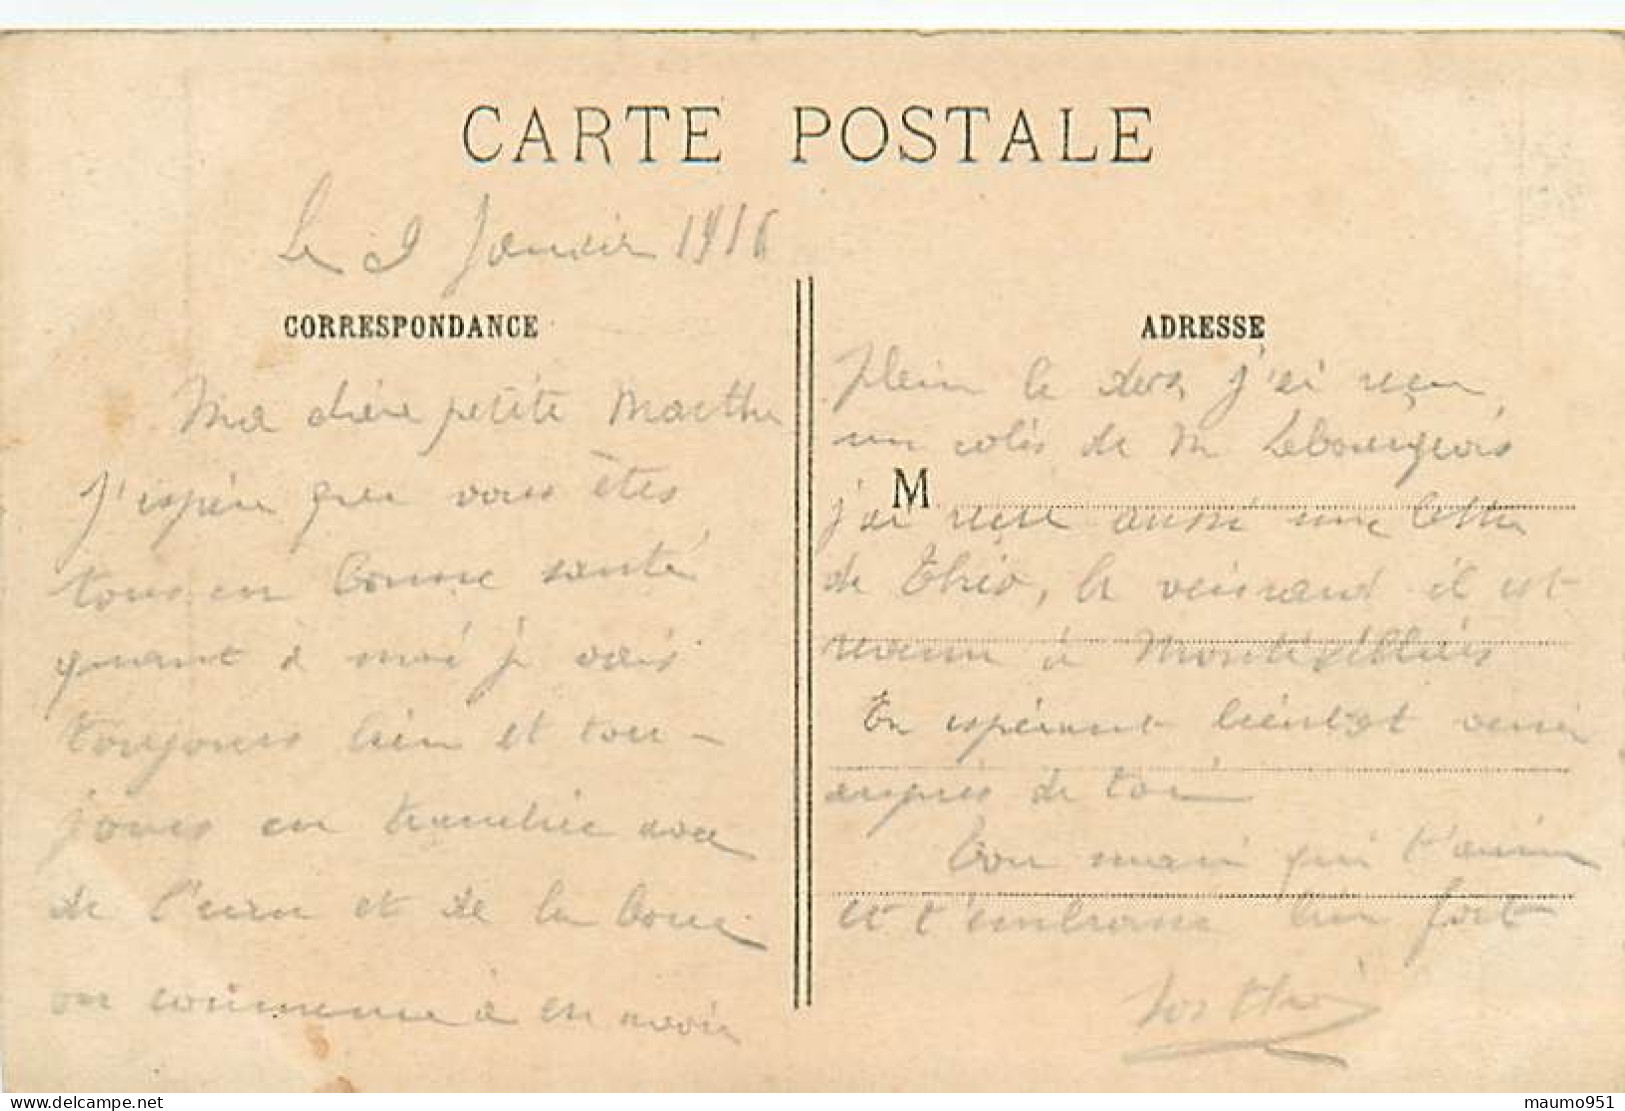 CARTE POSTALE
Le 9 Janvier 1916
CORRESPONDANCE
Ma chère petite Marthe
J'espère que vous êtes
tous en bonne santé
quant à moi je vais
toujours bien et tou-
jours en tranchée avec
de l'eau et de la boue
on commence à en avoir
ADRESSE
plein le dos, j'ai reçu
un colis de M Lebourgeois
M
j'ai reçu aussi une lettre
de Théo, le veinard il est
revenu à
En espérant bientôt venir
auprès de toi
Ton mari qui t'aime
et t'embrasse bien fort
maumo951